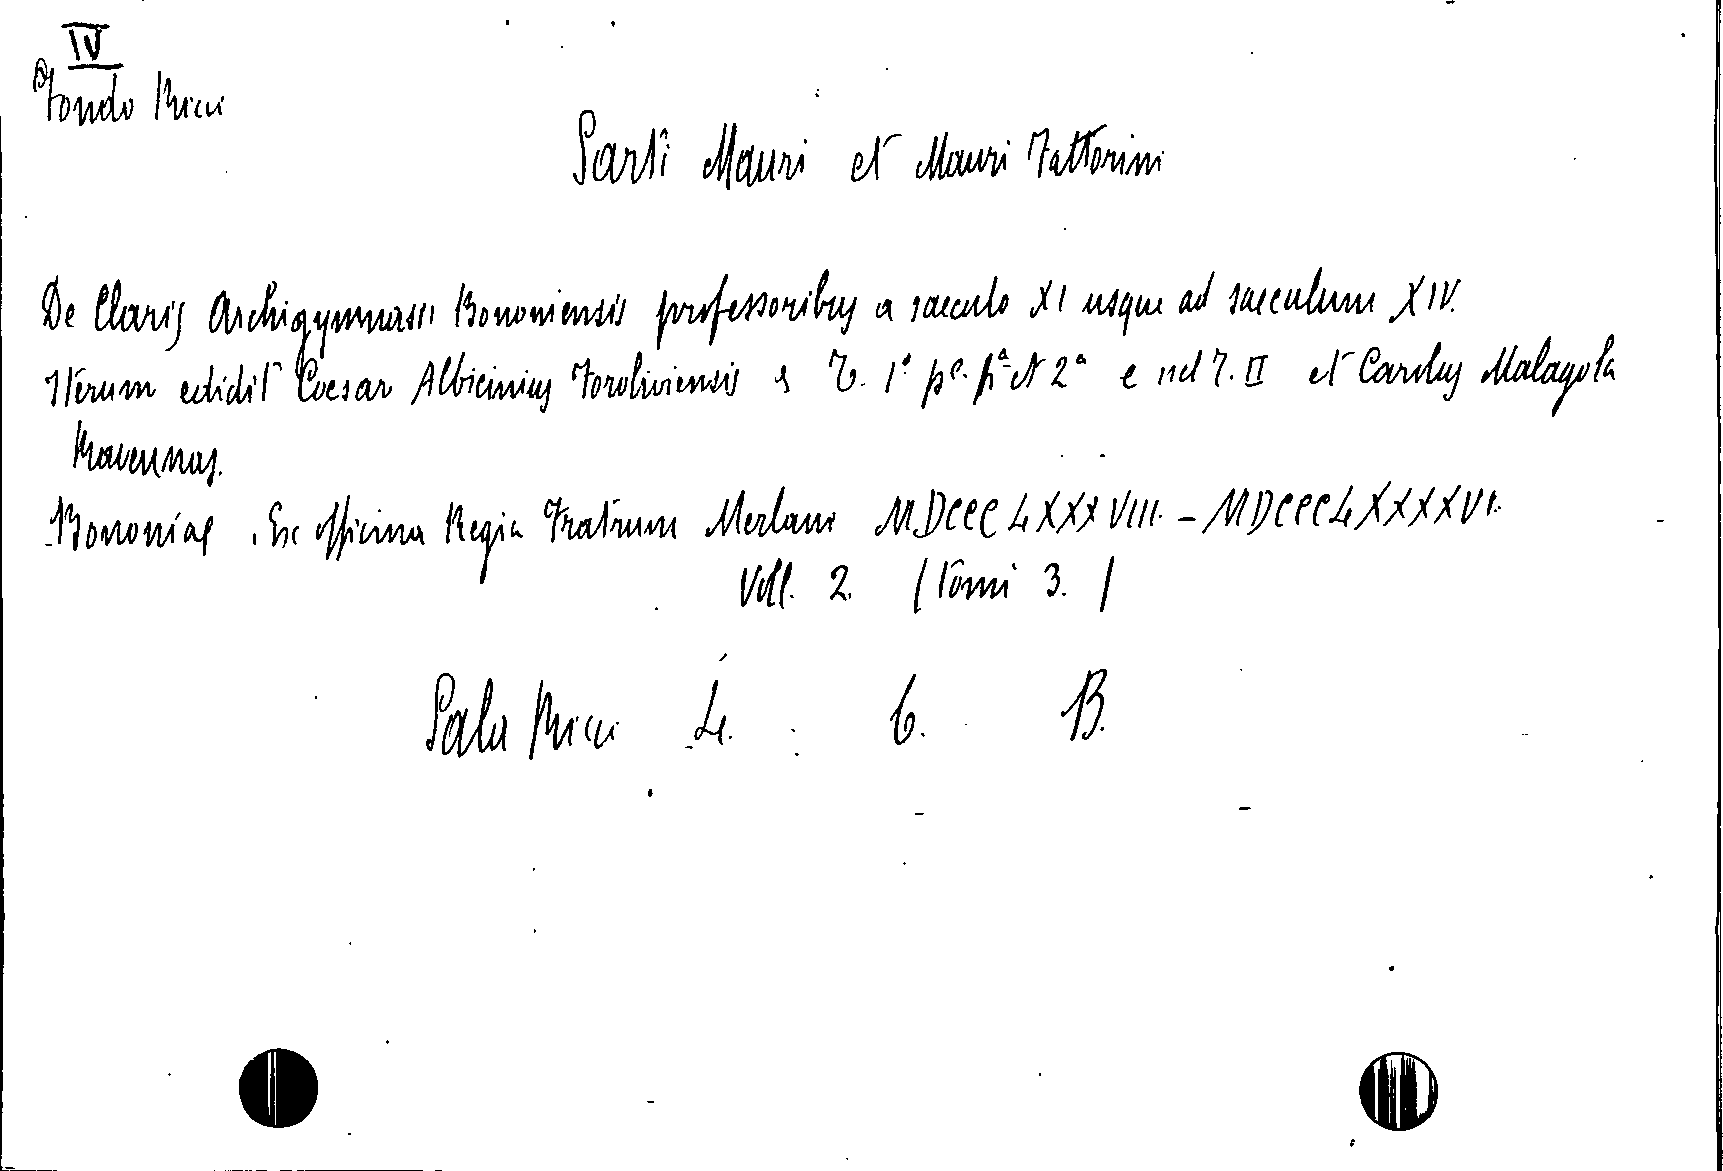 IV
Fondo Ricci
Sarti Mauri et Mauri Fattorini
De Claris Archigymnasii Bononiensis professoribus a saeculo XI usque ad saeculum XIV.
Iterum edidit Coesar Albicinius Foroliviensis T. 1° pe. pa et 2a e nel T. II et Carolus Malagola
Ravennas.
Bononiae. Ex officina Regia Fratrum Merlani MDCCCLXXXVIII. - MDCCCLXXXXVI.
Voll. 2. (Tomi 3.)
Sala Ricci 4. C. B.